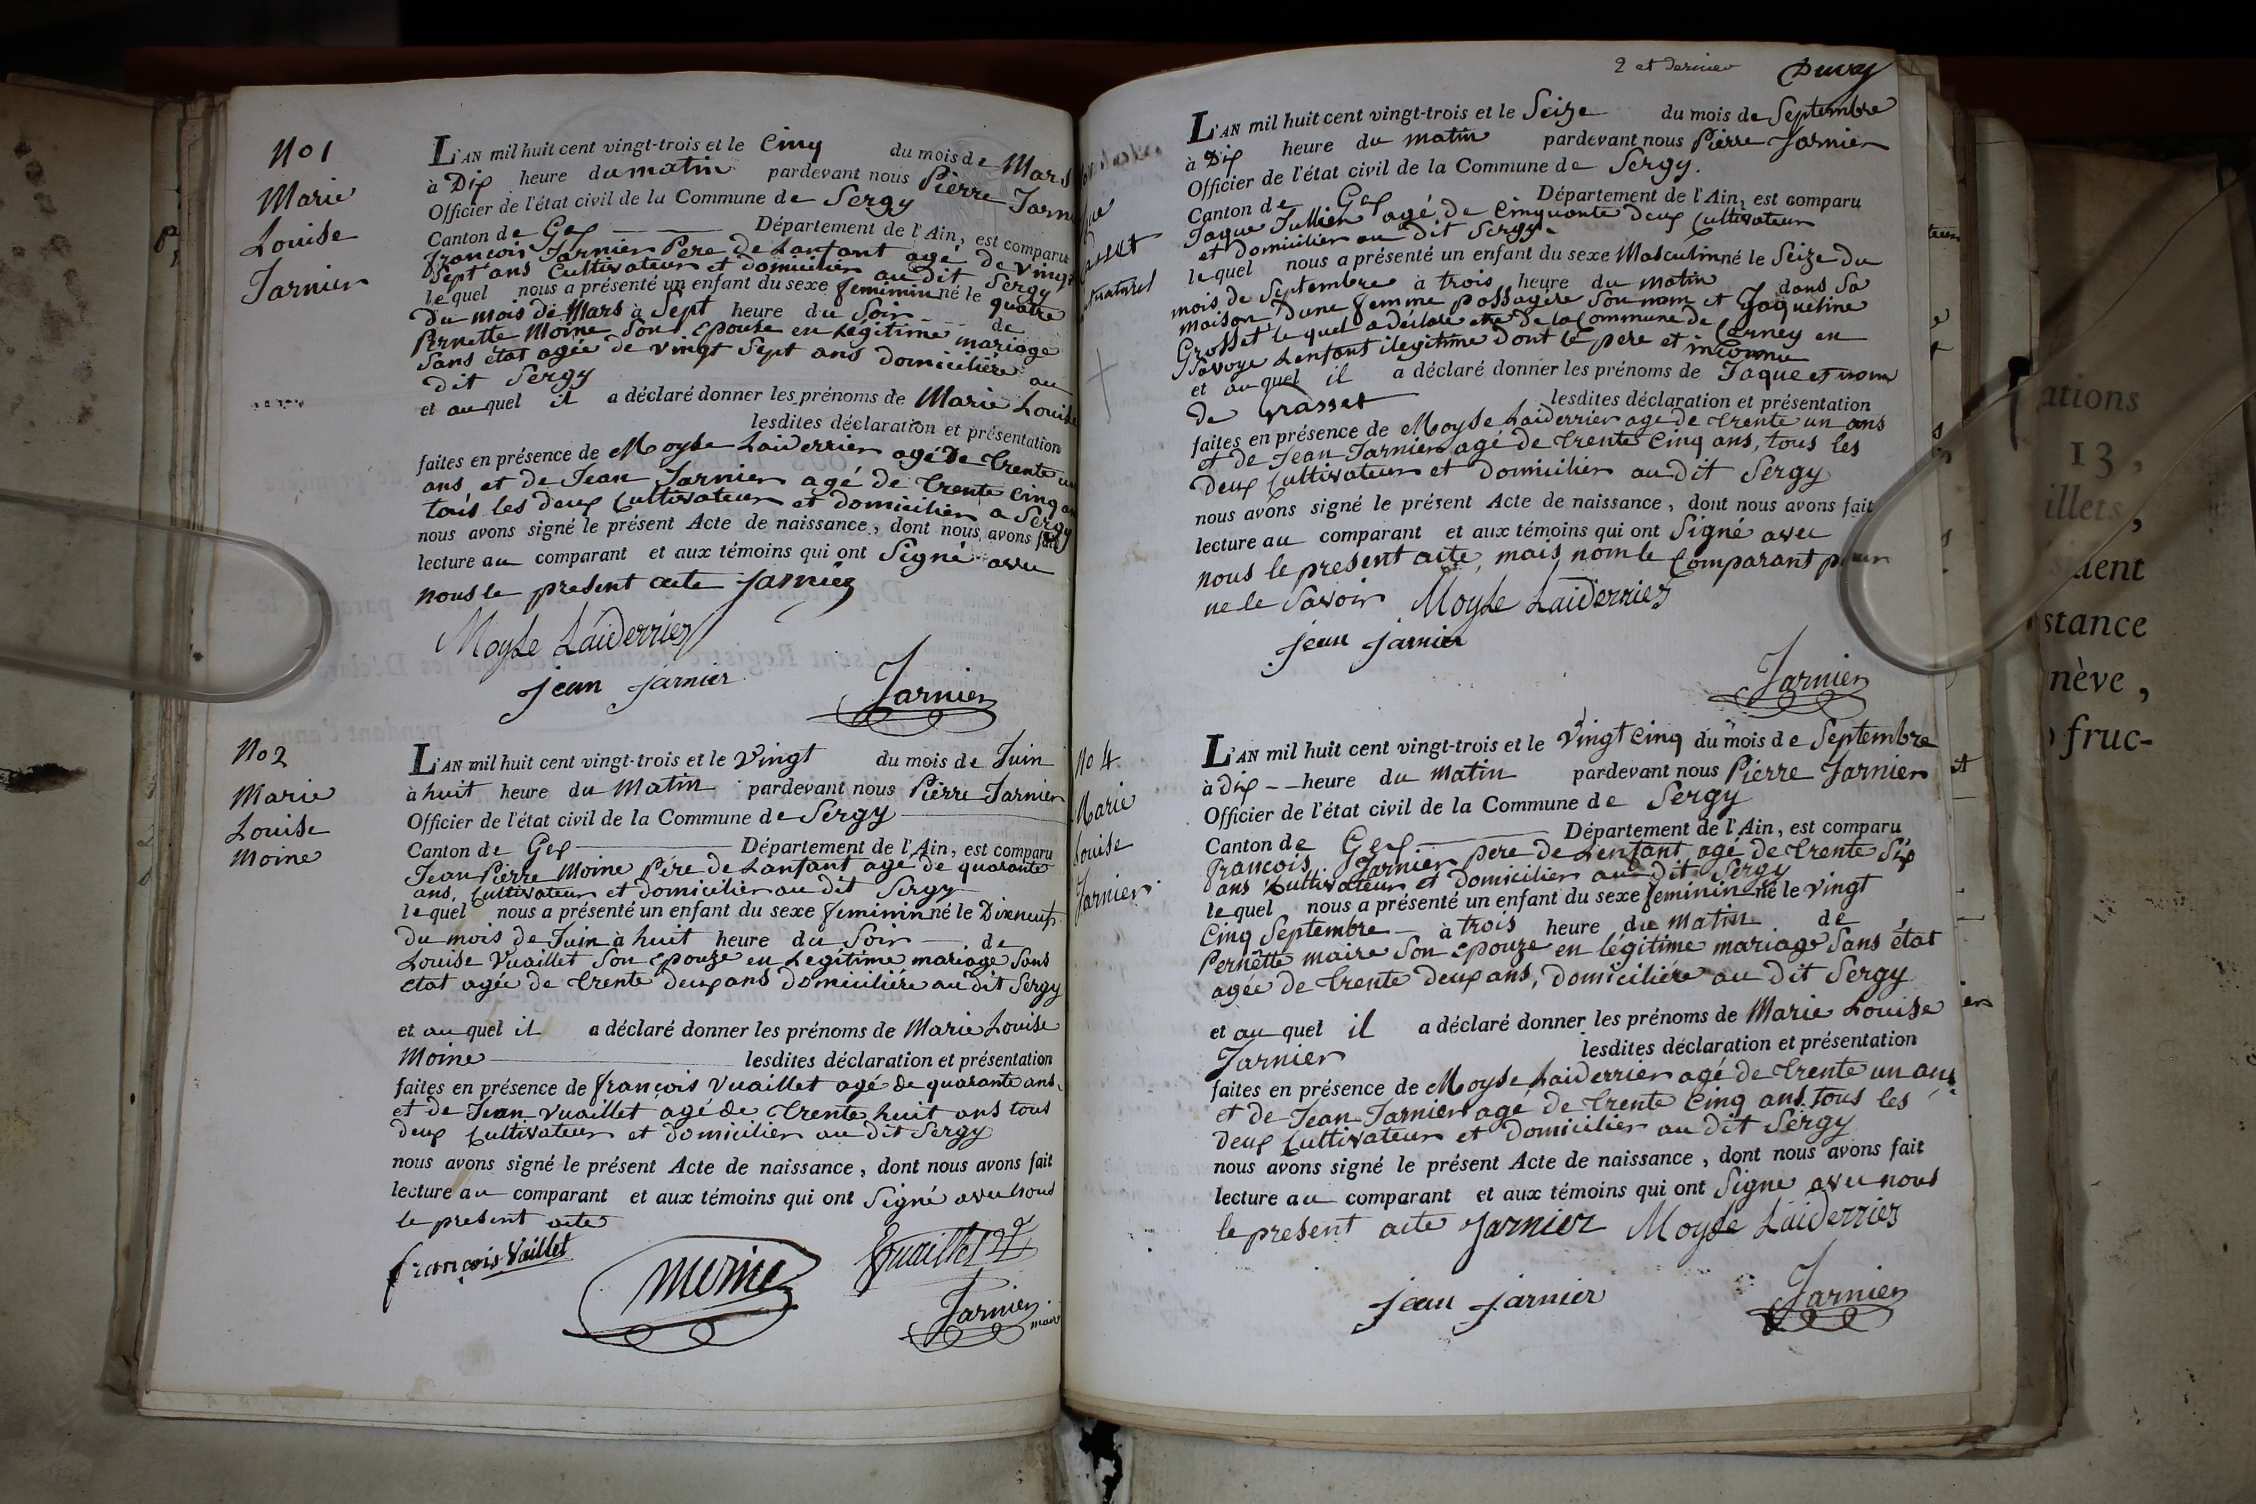 No 1
Marie
Louise
Jarnier
L'AN mil huit cent vingt-trois et le Cinq du mois de Mars
à Dix heure du matin pardevant nous Pierre Jarni
Officier de l'état civil de la Commune de Sergy
Canton de Gex Département de l'Ain, est comparu
François Jarnier Pere de Lanfant agé de vingt
Sept ans Cultivateur et domicilier au dit Sergy
le quel nous a présenté un enfant du sexe feminin né le quatre
Du mois de Mars à Sept heure du Soir de
Pernette Moine Son Epouse en Legitime mariage
Sans état agée de vingt Sept ans domiciliére au
dit Sergy
et au quel il a déclaré donner les prénoms de Marie Louise
lesdites déclaration et présentation
faites en présence de Moyse Laiderrier agé De trente un
ans et de Jean Jarnier agé de trente Cinq an
tous les deux Cultivateur et domicilier a Sergy
nous avons signé le présent Acte de naissance, dont nous avons fait
lecture au comparant et aux témoins qui ont Signé avec
nous le present acte Jarnier
Moyse Laiderrier
jean jarnier
Jarnier
No 2
Marie
Louise
Moine
L'AN mil huit cent vingt-trois et le Vingt du mois de Juin
à huit heure du Matin pardevant nous Pierre Jarnier
Officier de l'état civil de la Commune de Sergy
Canton de Gex Département de l'Ain, est comparu
Jean Pierre Moine Pére de Lanfant agé de quarante
ans, Cultivateur et domicilier au dit Sergy
le quel nous a présenté un enfant du sexe feminin né le Dixneuf
du mois de Juin à huit heure du Soir de
Louise Vuaillet Son Epouze en Legitime mariage Sans
état agée de trente deux ans domiciliére au dit Sergy
et au quel il a déclaré donner les prénoms de Marie Louise
Moine lesdites déclaration et présentation
faites en présence de françois Vuaillet agé de quarante ans
et de Jean Vuaillet agé de trente huit ans tous
deux Cultivateur et domicilier au dit Sergy
nous avons signé le présent Acte de naissance, dont nous avons fait
lecture au comparant et aux témoins qui ont Signé avec nous
le present acte
françois Vaillet
Moine
Vuaillet
Jarnier
maire
2 et dernier
L'AN mil huit cent vingt-trois et le Seize du mois de Septembre
à Dix heure du matin pardevant nous Pierre Jarnier
Officier de l'état civil de la Commune de Sergy.
Canton de Gex Département de l'Ain, est comparu
Jaque Jullien agé de Cinquante deux Cultivateur
et domicilier au dit Sergy
le quel nous a présenté un enfant du sexe Masculin né le Seize du
mois de Septembre à trois heure du matin dans Sa
maison Dune femme passagere Son nom et Jaqueline
Grosset le quel a déclaré etre de la Commune de Cerney en
Savoye Lenfant ilegitime dont le pere et inconnu
et au quel il a déclaré donner les prénoms de Jaque et nom
de Grasset lesdites déclaration et présentation
faites en présence de Moyse Laiderrier agé de trente un ans
et de Jean Jarnier agé de trente Cinq ans, tous les
deux Cultivateur et domicilier au dit Sergy
nous avons signé le présent Acte de naissance, dont nous avons fait
lecture au comparant et aux témoins qui ont Signé avec
nous le present acte, mais nom le Comparant pour
ne le Savoir Moyse Laiderrier
jean jarnier
Jarnier
No 4
Marie
Louise
Jarnier
L'AN mil huit cent vingt-trois et le Vingt Cinq du mois de Septembre
à Dix heure du Matin pardevant nous Pierre Jarnier
Officier de l'état civil de la Commune de Sergy
Canton de Gex Département de l'Ain, est comparu
François Jarnier pere de Lenfant agé de trente Six
ans Cultivateur et domicilier au dit Sergy
le quel nous a présenté un enfant du sexe feminin né le Vingt
Cinq Septembre à trois heure du Matin de
Pernette maire Son Epouze en légitime mariage Sans état
agée de trente deux ans, domiciliére au dit Sergy
et au quel il a déclaré donner les prénoms de Marie Louise
Jarnier lesdites déclaration et présentation
faites en présence de Moyse Laiderrier agé de trente un ans
et de Jean Jarnier agé de trente Cinq ans tous les
deux Cultivateur et domicilier au dit Sergy
nous avons signé le présent Acte de naissance, dont nous avons fait
lecture au comparant et aux témoins qui ont Signé avec nous
le present acte Jarnier Moyse Laiderrier
jean jarnier
Jarnier
ations
13,
illets,
dent
stance
nève,
fruc-